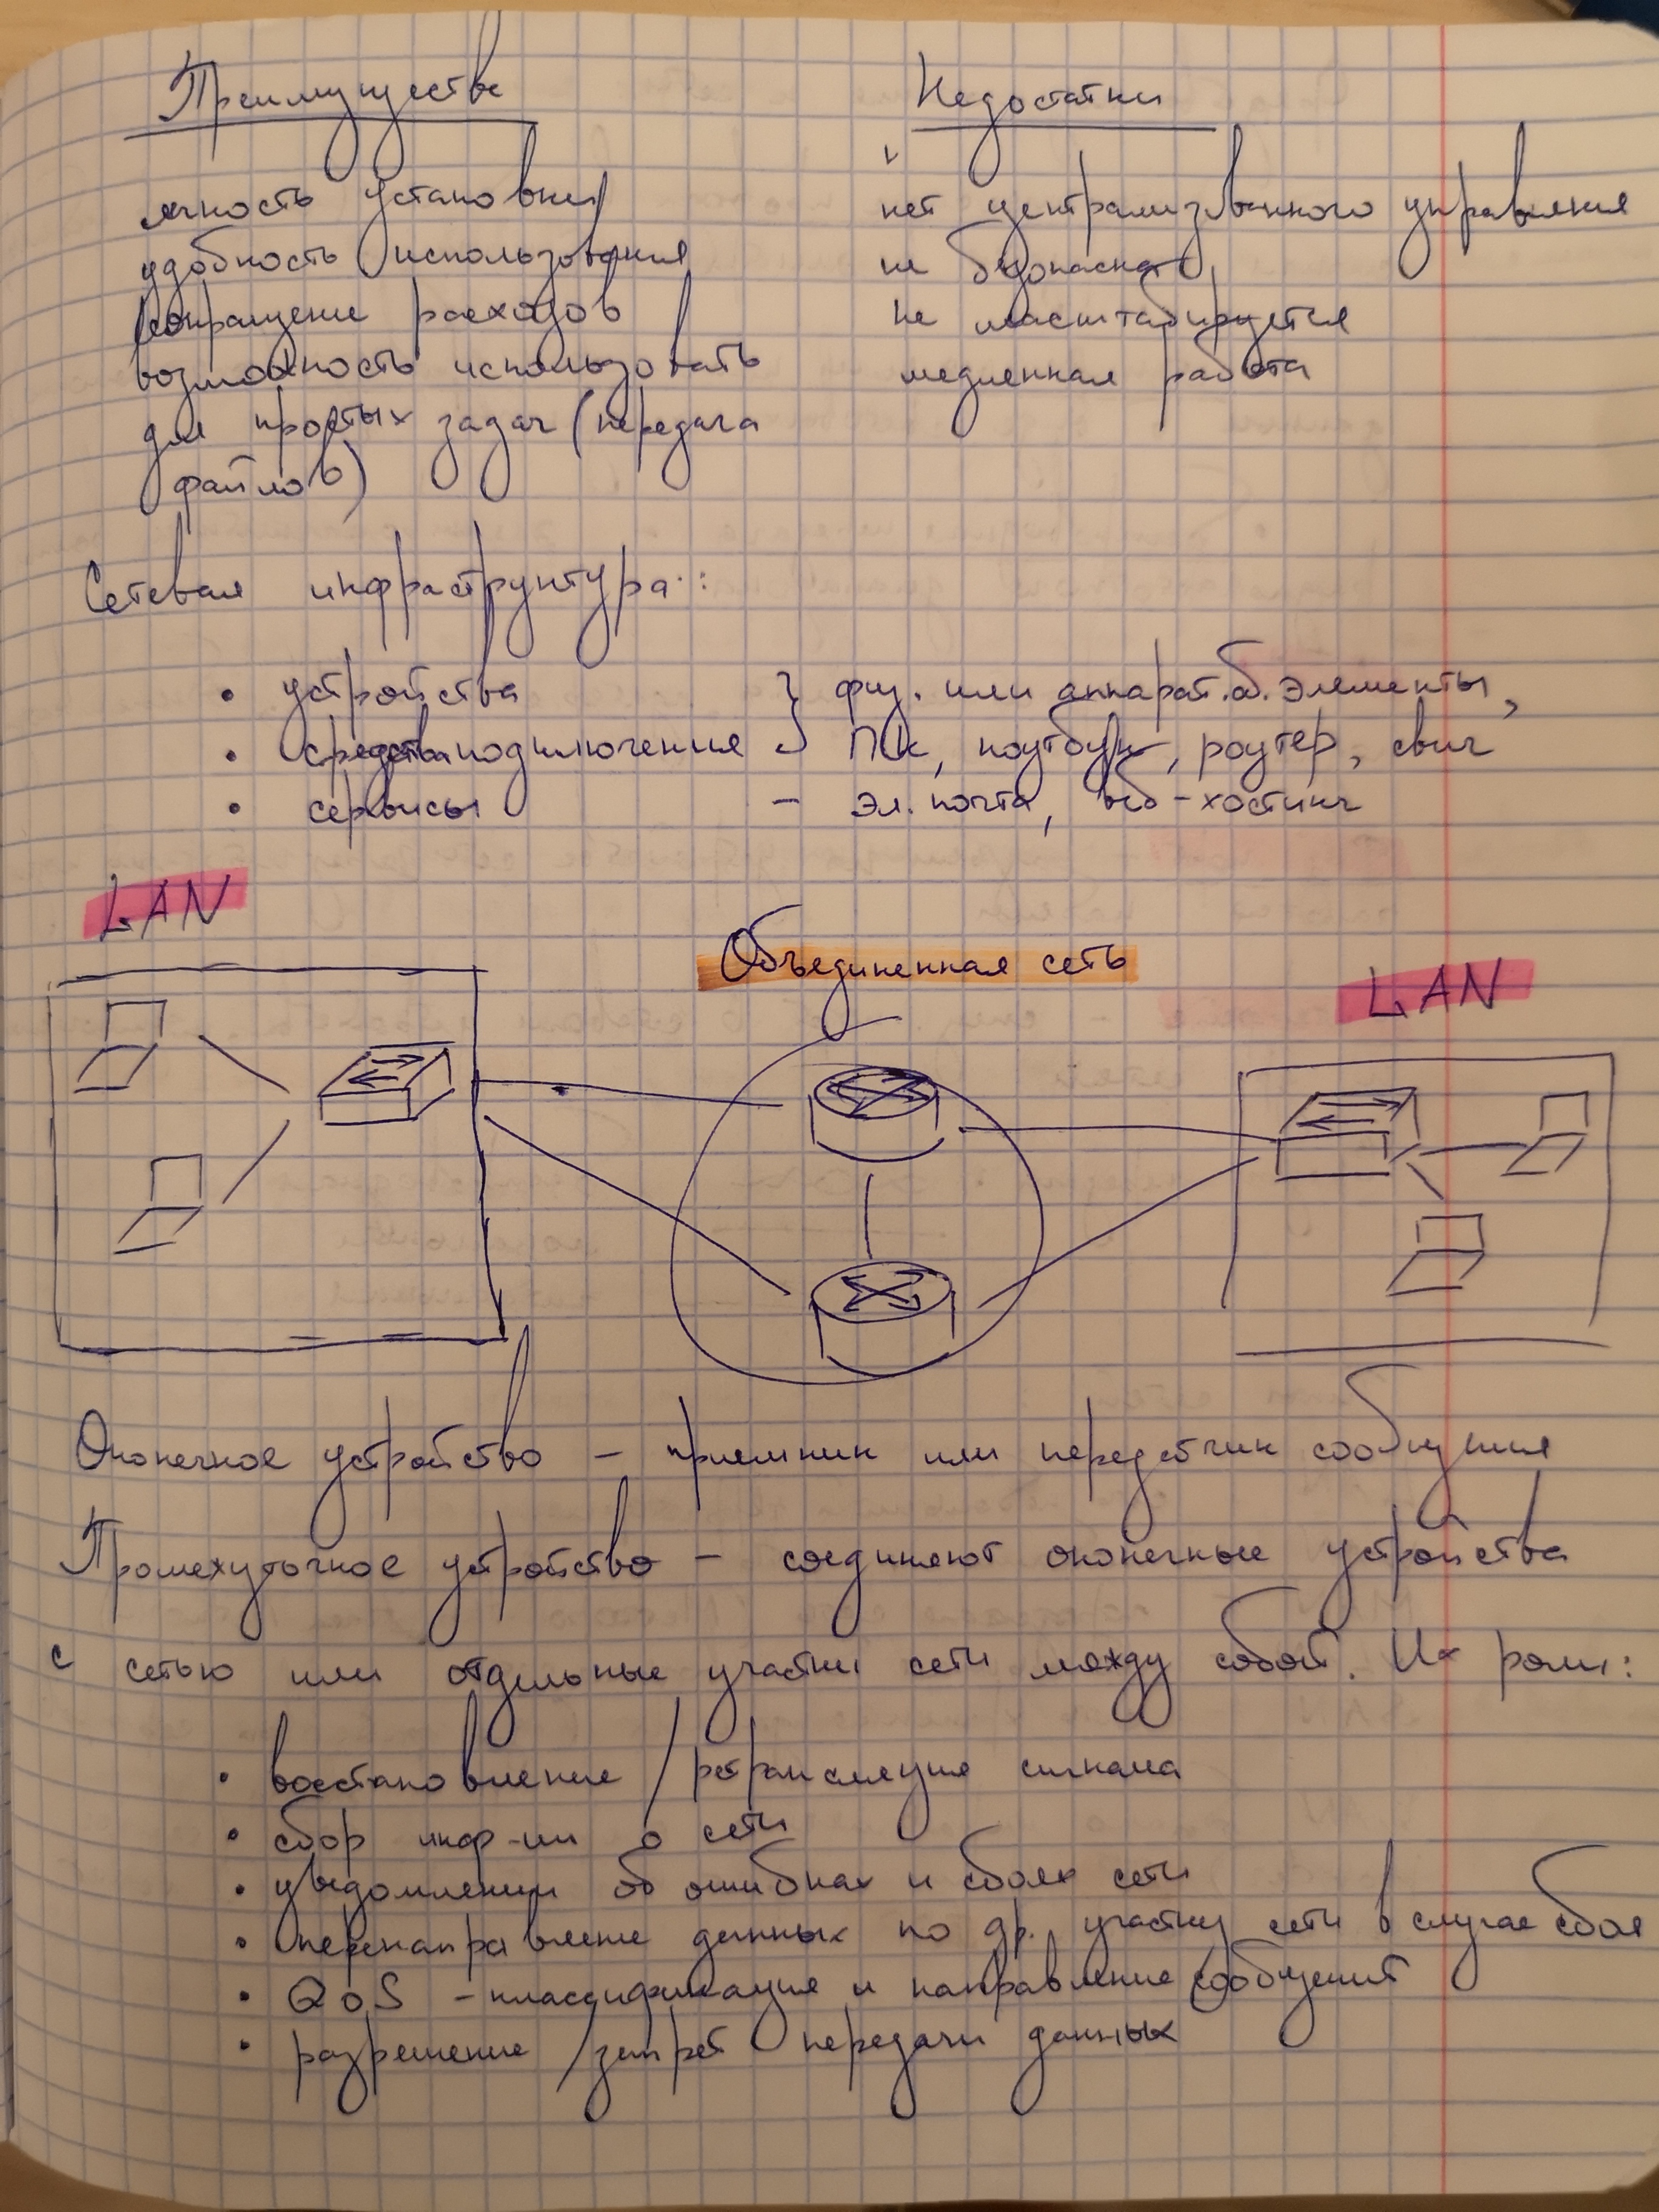 Преимущества
легкость установки
удобность использования
сокращение расходов
возможность использовать
для простых задач (передача
файлов)
Недостатки
нет централизованного управления
не безопасна
не масштабируется
медленная работа
Сетевая инфраструктура:
• устройства } физ. или аппарат.об. элементы,
• средства подключения } ПК, ноутбук, роутер, свич
• сервисы – эл. почта, веб-хостинг
LAN
Объединенная сеть
LAN
Оконечное устройство – приемник или передатчик сообщения
Промежуточное устройство – соединяют оконечные устройства
с сетью или отдельные участки сети между собой. Их роли:
• восстановление / ретрансляция сигнала
• сбор инф-ии о сети
• уведомлении об ошибках и сбоях сети
• перенаправление данных по др. участку сети в случае сбоя
• QoS – классификация и направление сообщений
• разрешение / запрет передачи данных